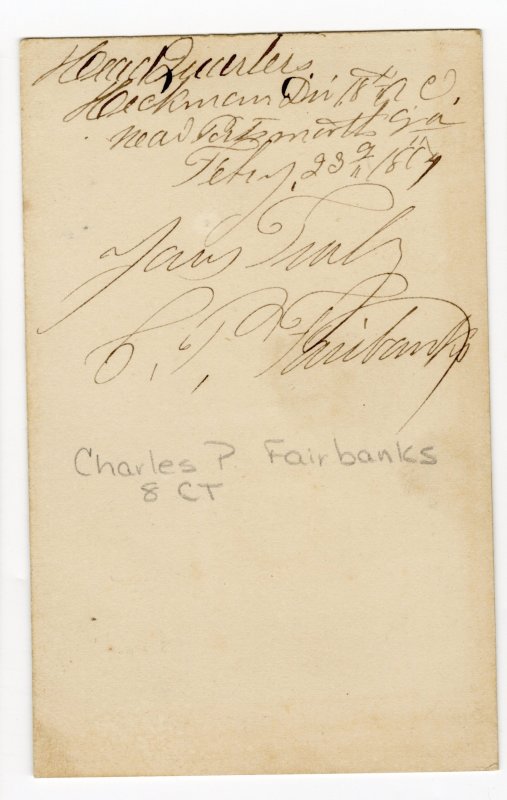 Head Quarters
Heckman Div 18" A C,
near Portsmouth Va
Feby, 23d 1864
Yours Truly
C. P. Fairbanks
Charles P Fairbanks
8 CT